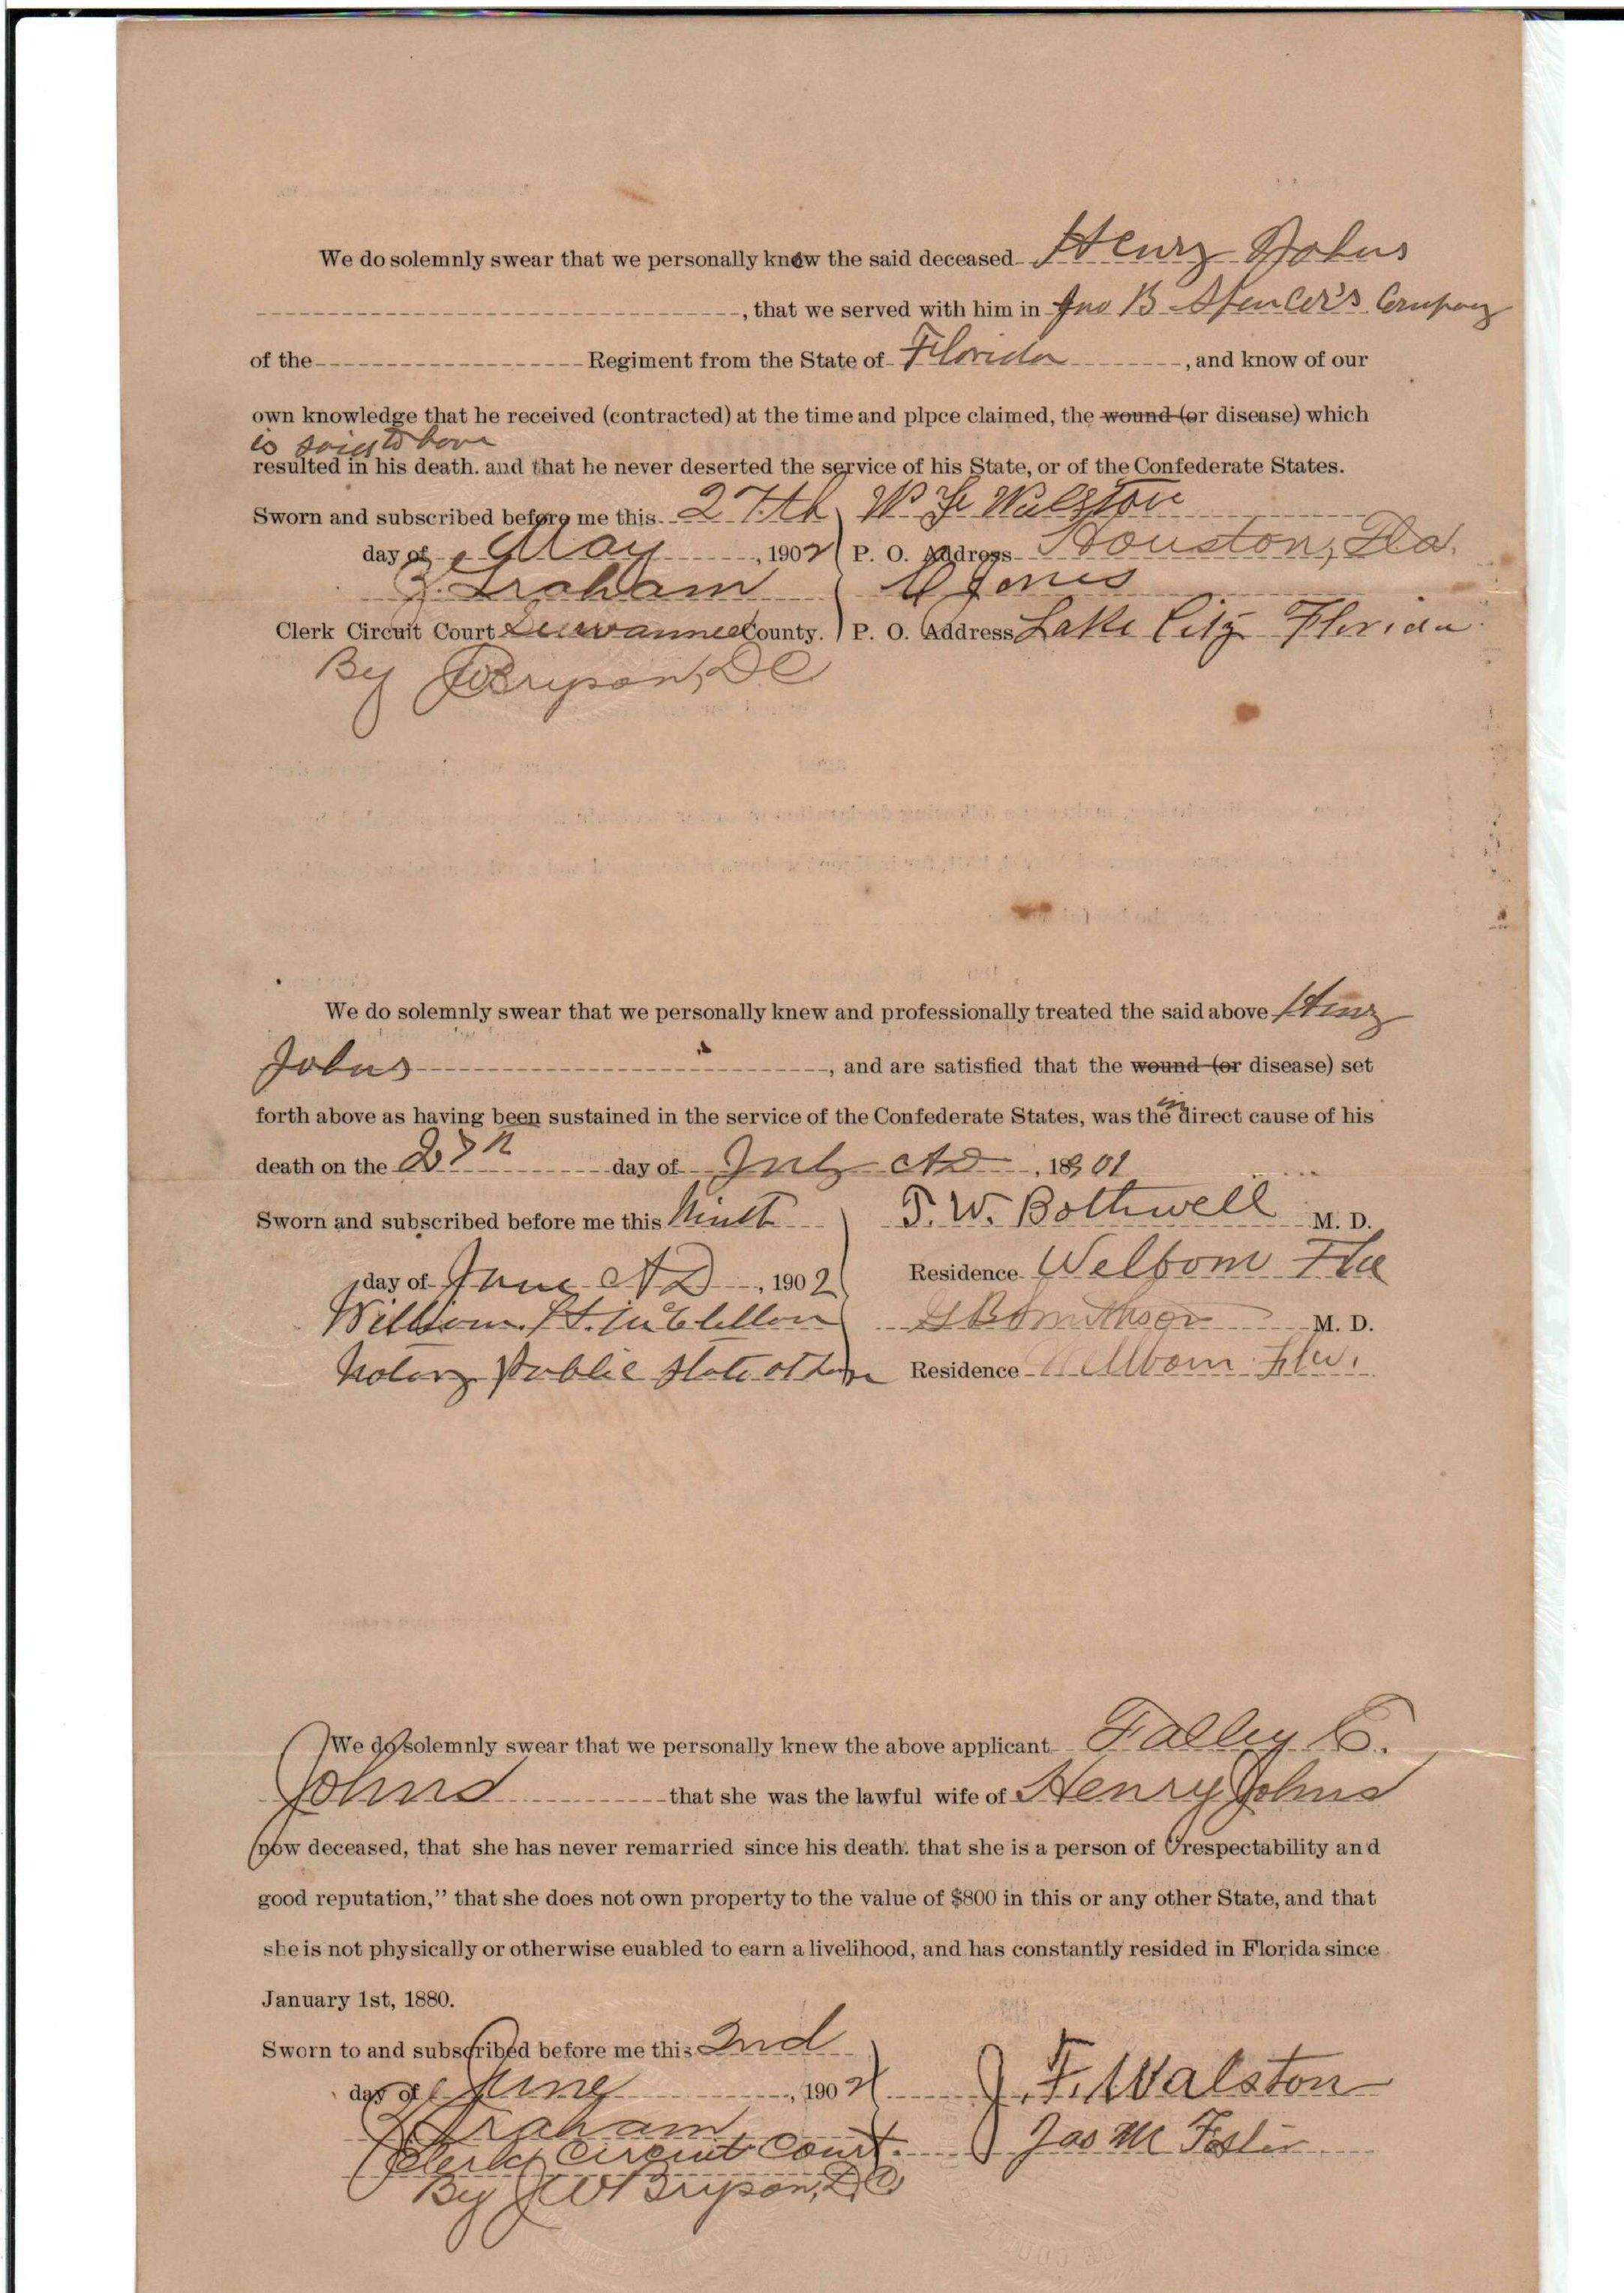 We do solemnly swear that we personally knew the said deceased Henry Johns
, that we served with him in Jno B Spencer's Company
of the Regiment from the State of Florida , and know of our
own knowledge that he received (contracted) at the time and plpce claimed, the wound (or disease) which
is said to have
resulted in his death. and that he never deserted the service of his State, or of the Confederate States.
Sworn and subscribed before me this 27th W Walston
day of May , 1902 P. O. Address Houston, Fla.
Graham Jones
Clerk Circuit Court Suwannee County. P. O. Address Lake City Florida
By JW Bryson, DC
We do solemnly swear that we personally knew and professionally treated the said above Henry
Johns , and are satisfied that the wound (or disease) set
forth above as having been sustained in the service of the Confederate States, was the in direct cause of his
death on the day of July AD , 1901
Sworn and subscribed before me this Ninth T. W. Bothwell M. D.
day of June AD , 1902 Residence Welborn Fla
William H. McClellan G B Smithson M. D.
Notary Public State at Large Residence Wellborn Fla.
We do solemnly swear that we personally knew the above applicant Talley C.
Johns that she was the lawful wife of Henry Johns
now deceased, that she has never remarried since his death. that she is a person of "respectability and
good reputation," that she does not own property to the value of $800 in this or any other State, and that
she is not physically or otherwise euabled to earn a livelihood, and has constantly resided in Florida since
January 1st, 1880.
Sworn to and subscribed before me this 2nd
day of June , 1902 J. F. Walston
Graham Jas M Foster
Clerk Circuit Court.
By JW Bryson, DC